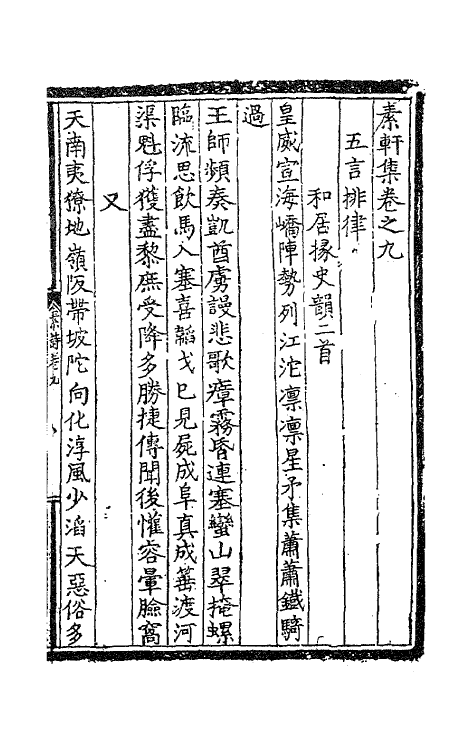 素軒集卷之九
五言排律
和居掾史韻二首
皇威宣海嶠陣勢列江沱凛凛星矛集蕭蕭鐵騎
過
王師頻奏凱酋虜謾悲歌瘴霧昏連塞蠻山翠掩螺
臨流思飲馬入塞喜韜戈已見屍成阜真成葦渡河
渠魁俘獲盡黎庶受降多勝捷傳聞後懽容暈臉窩
又
天南夷獠地嶺阪帶坡陀向化淳風少滔天惡俗多
素詩卷九